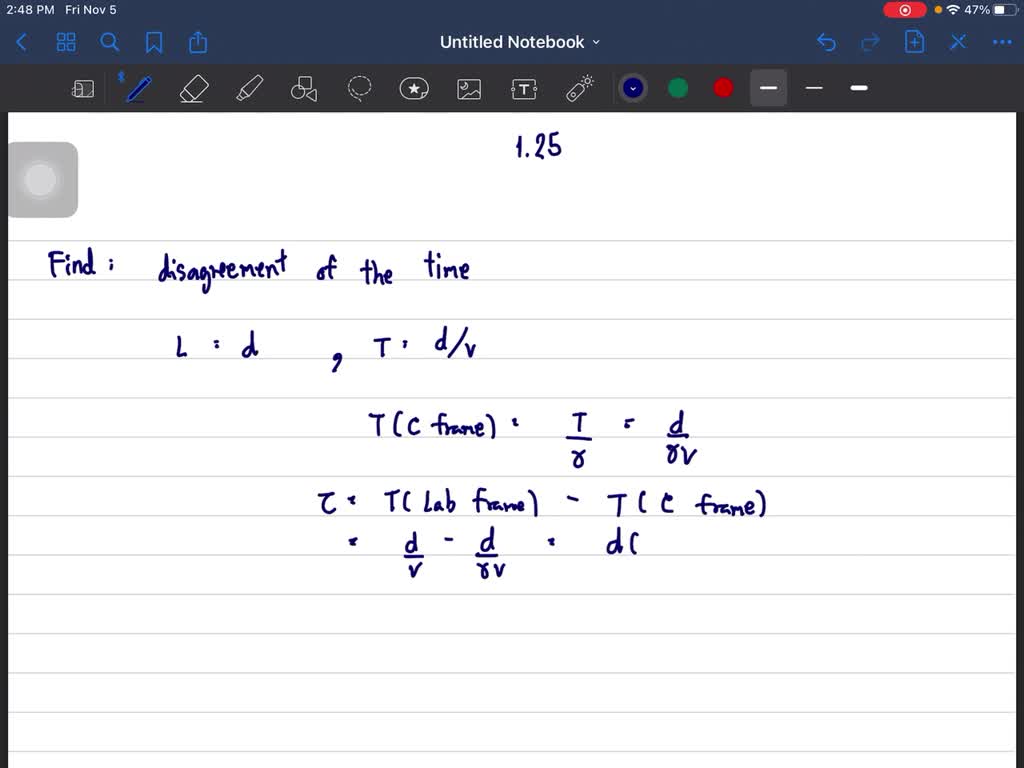 2:48 PM Fri Nov 5 47%
Untitled Notebook
1.25
Find: disagreement of the time
L = d , T = d/v
T(C frame) = T/γ = d/γv
τ = T(Lab frame) - T(C frame)
= d/v - d/γv = d(